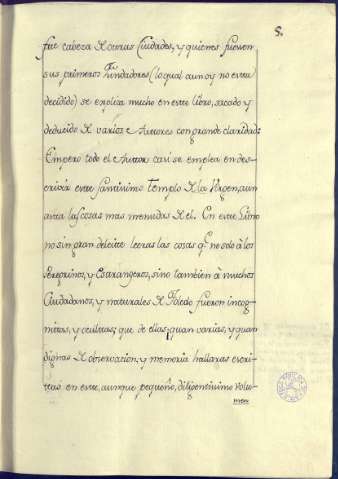 5.
fue cabeza de otras Ciudades, y quienes fueron
sus primeros Fundadores (lo qual aun oy no esta
decidido) se explica mucho en este libro, sacado y
deducido de varios Autores con grande claridad:
Empero todo el Autor casi se emplea en des-
crivir este santissimo Templo de la Virgen, aun
asta las cosas mas menudas de el. En este Libro
no sin gran deleite leeras las cosas q.e no solo à los
Peregrinos, y Estrangeros, sino tambien à muchos
Ciudadanos, y naturales de Toledo fueron incog-
nitas, y ocultas; que de ellas, quan varias, y quan
dignas de observacion, y memoria hallaras escri-
tas en este, aunque pequeño, diligentissimo volu-
men